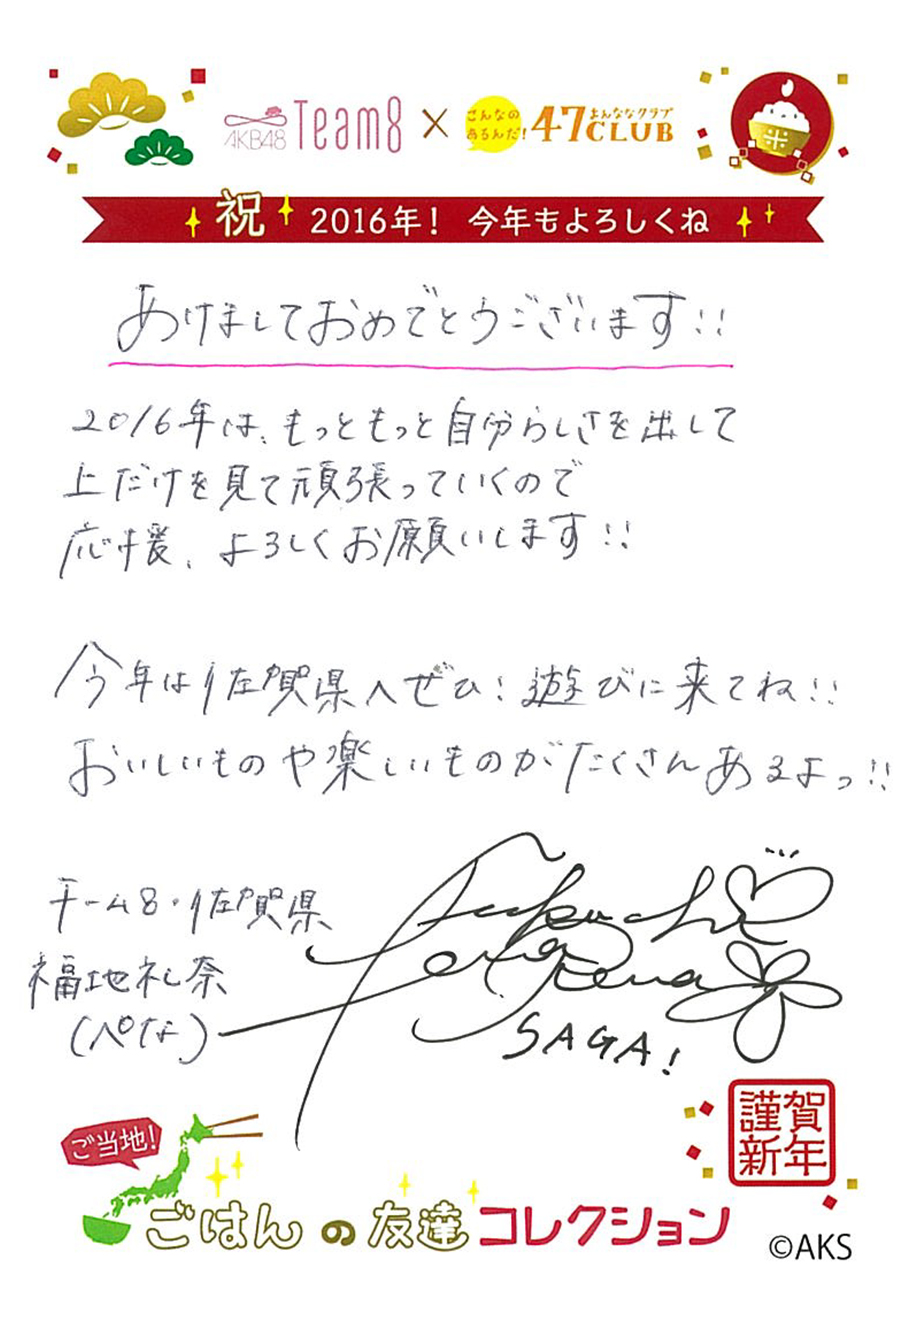 AKB48 Team8 × こんなのあるんだ! 47CLUB よんななクラブ
米
祝 2016年! 今年もよろしくね
あけましておめでとうございます!!
2016年は、もっともっと自分らしさを出して
上だけを見て頑張っていくので
応援、よろしくお願いします!!
今年は佐賀県へぜひ!遊びに来てね!!
おいしいものや楽しいものがたくさんあるよっ!!
チーム8・佐賀県
福地礼奈
(ぺな)
Fukuchi
Rena
SAGA!
謹賀
新年
ご当地!
ごはんの友達コレクション
©AKS